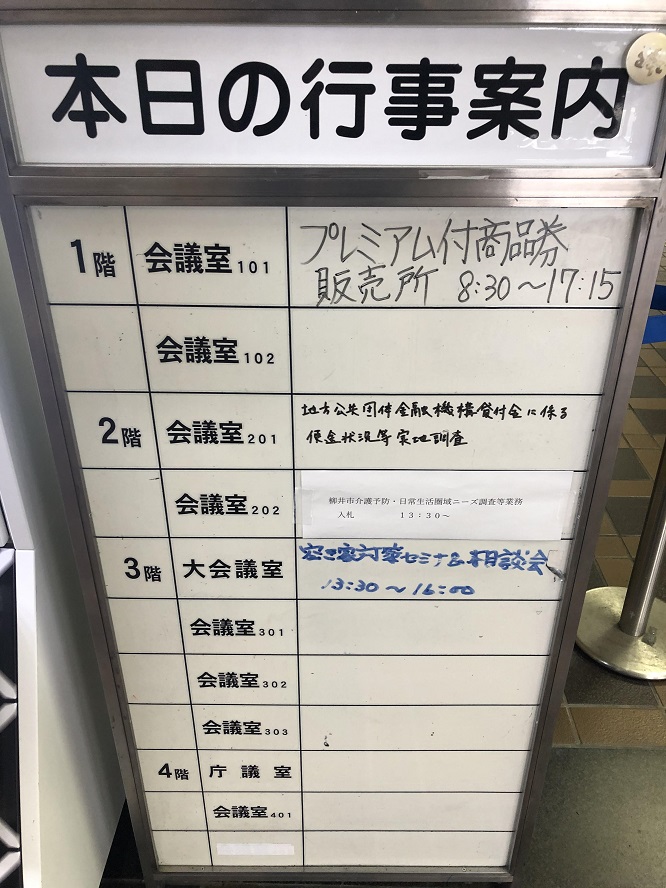 本日の行事案内
1階 会議室101 プレミアム付商品券
販売所 8:30〜17:15
会議室102
2階 会議室201 地方公共団体金融機構貸付金に係る
使途状況等実地調査
会議室202 柳井市介護予防・日常生活圏域ニーズ調査等業務
入札 13:30〜
3階 大会議室 空き家対策セミナー&相談会
13:30〜16:00
会議室301
会議室302
会議室303
4階 庁議室
会議室401